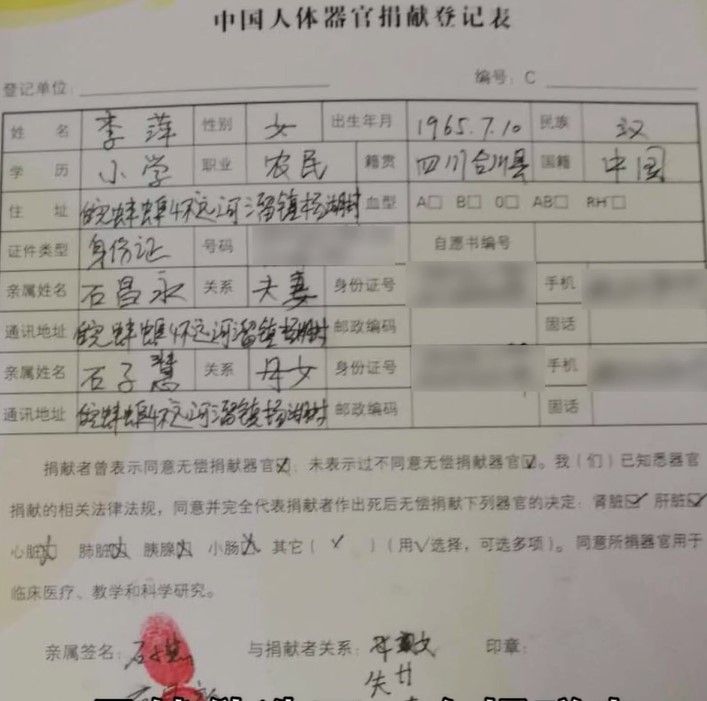 中国人体器官捐献登记表
登记单位: 编号: C
姓 名 李萍 性别 女 出生年月 1965.7.10 民族 汉
学 历 小学 职业 农民 籍贯 四川合川县 国籍 中国
住 址 皖蚌埠怀远河溜镇杨湖村 血型 A□ B□ O□ AB□ RH□
证件类型 身份证 号码 自愿书编号
亲属姓名 石昌永 关系 夫妻 身份证号 手机
通讯地址 皖蚌埠怀远河溜镇杨湖村 邮政编码 固话
亲属姓名 石子慧 关系 母女 身份证号 手机
通讯地址 皖蚌埠怀远河溜镇杨湖村 邮政编码 固话
捐献者曾表示同意无偿捐献器官☑; 未表示过不同意无偿捐献器官☑。我(们)已知悉器官
捐献的相关法律法规，同意并完全代表捐献者作出死后无偿捐献下列器官的决定: 肾脏☑ 肝脏☑
心脏 肺脏 胰腺 小肠 其它( ✓ )(用√选择，可选多项)。同意所捐器官用于
临床医疗、教学和科学研究。
亲属签名: 与捐献者关系: 印章: